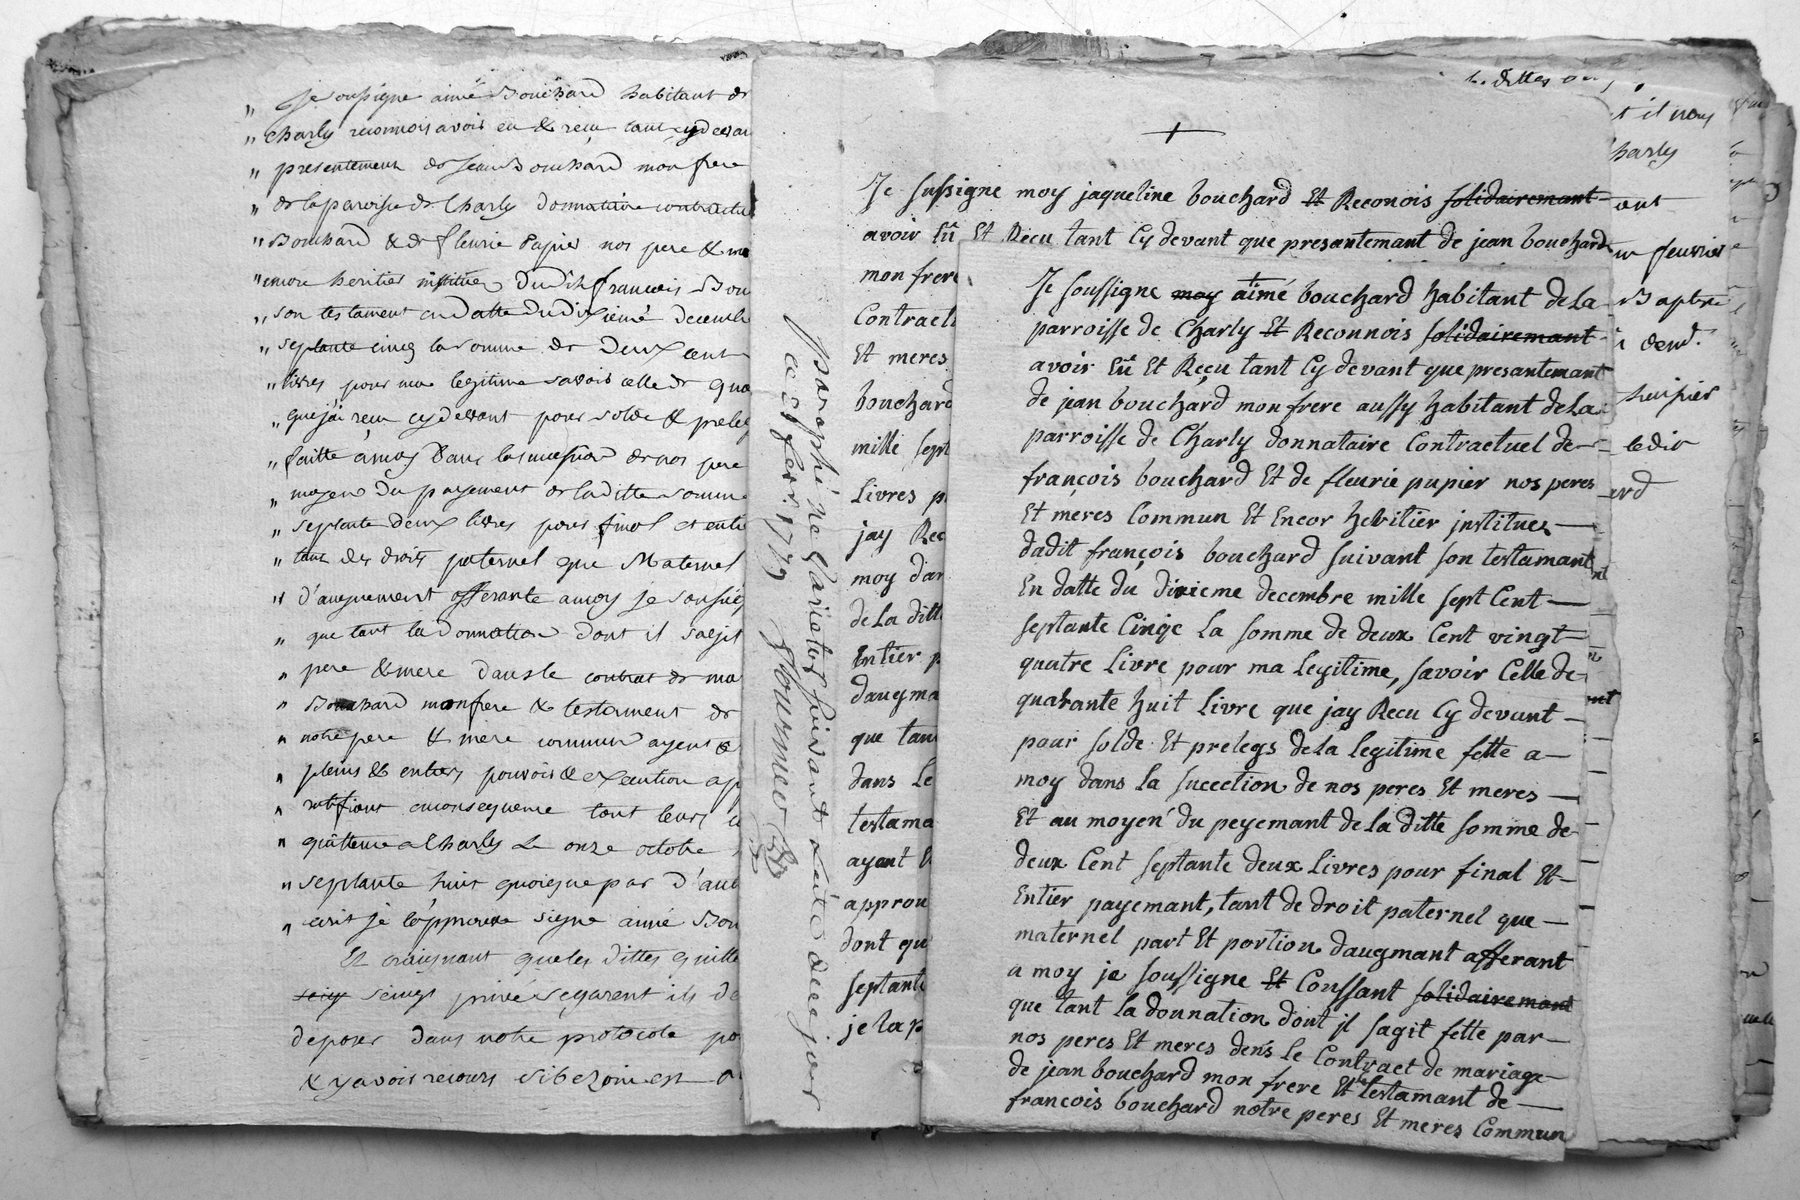 „ Je soussigne aimé Bouchard habitant de
„ Charly reconnois avoir eu & recu tant cy devant
„ presentement de Jean Bouchard mon frere
„ de la paroisse de Charly donnataire contractuel
„ Bouchard & de fleurie Pupier nos pere & me
„ encore heritier institue dudit françois Bou
„ son testament en datte du dixieme decemb
„ septante cinq la somme de deux cent
„ livres pour ma legitime savoir celle de qua
„ que j'ai recu cy devant pour solde & preleg
„ faitte a moy dans la succession de nos pere
„ moyen du payement de la ditte somme
„ septante deux livres pour final et entier
„ tant des droits paternel que Maternel
„ d'augmement afferante a moy je soussig
„ que tant la donnation dont il sagit
„ pere & mere dans le contrat de ma
„ Bouchard mon frere & testament de
„ notre pere & mere commun ayent &
„ pleins & entiers pouvoir & execution app
„ ratifiant en consequence tout leurs
„ quittence a Charly Le onze octobre
„ septante huit quoique par d'aut
„ ecrit je l'approuve signe aimé Bou
Et craignant que les dittes quitte
seings privé segarent ils de
deposer dans notre protocole po
& y avoir recours si bezoin est
paraphé ne variatur suivant l'acte de ce jour
ce fevr. 1779
+
Je sussigne moy jaqueline bouchard Et Reconois solidairemant
avoir Eü Et Recu tant Cy devant que presantemant de jean bouchard
mon frere
Contract
Et meres
bouchard
mille sept
Livres p
jay Rec
moy dan
de La ditt
Entier p
daugma
que tan
dans Le
testama
ayant E
approu
dont qu
septant
je lap
Je soussigne moy aimé bouchard habitant de La
parroisse de Charly Et Reconnois solidairemant
avoir Eü Et Reçu tant Cy devant que presantemant
de jean bouchard mon frere aussy habitant de La
parroisse de Charly donnataire Contractuel de
françois bouchard Et de fleurie pupier nos peres
Et meres Commun Et Encor hebitier jnstituez
dadit françois bouchard suivant son testamant
En datte du dixieme decembre mille sept Cent
septante Cinqe La somme de deux Cent vingt
quatre Livre pour ma Legitime, savoir Celle de
quarante huit Livre que jay Recu Cy devant
pour solde Et prelegs de La legitime fette a
moy dans la succetion de nos peres Et meres
Et au moyen du peyemant de La ditte somme de
deux Cent septante deux Livres pour final Et
Entier payemant, tant de droit paternel que
maternel part Et portion daugmant afferant
a moy je soussigne Et Coussant solidairemant
que tant La donnation dont jl sagit fette par
nos peres Et meres dens Le Contract de mariage
de jean bouchard mon frere Et le testamant de
francois bouchard notre peres Et meres Commun
t il nous
harly
ant
feuvrier
Baptiste
huissier
ledit
ard